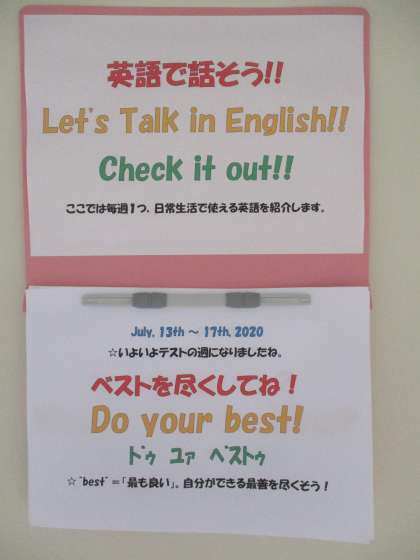 英語で話そう!!
Let's Talk in English!!
Check it out!!
ここでは毎週1つ、日常生活で使える英語を紹介します。
July, 13th ～ 17th, 2020
☆いよいよテストの週になりましたね。
ベストを尽くしてね！
Do your best!
ドゥ ユァ ベストゥ
☆ "best" =「最も良い」。自分ができる最善を尽くそう！